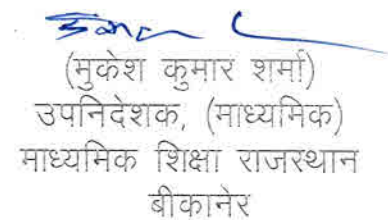 (मुकेश कुमार शर्मा)
उपनिदेशक, (माध्यमिक)
माध्यमिक शिक्षा राजस्थान
बीकानेर